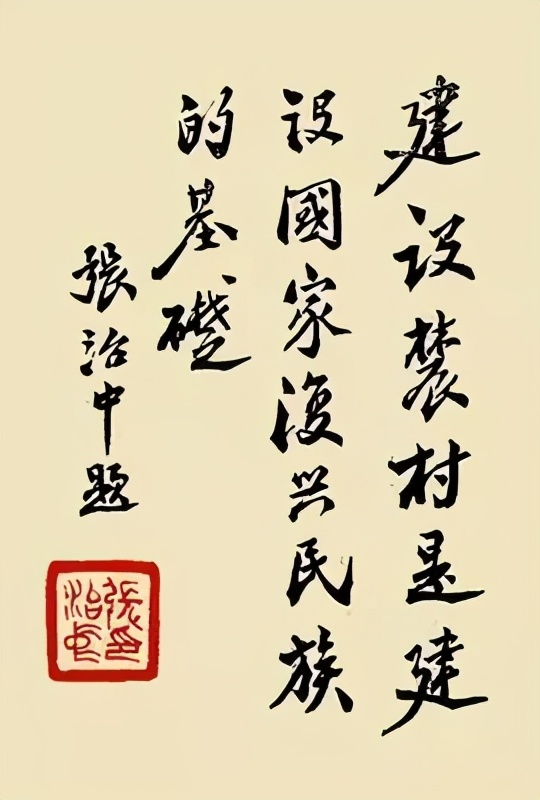 建设农村是建
设國家復兴民族
的基礎
張治中題
張治中印